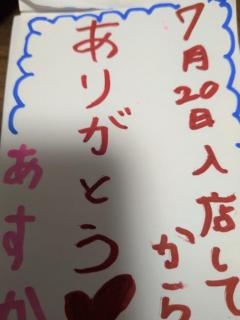 7月20日入店して
から
ありがとう♥
あすか